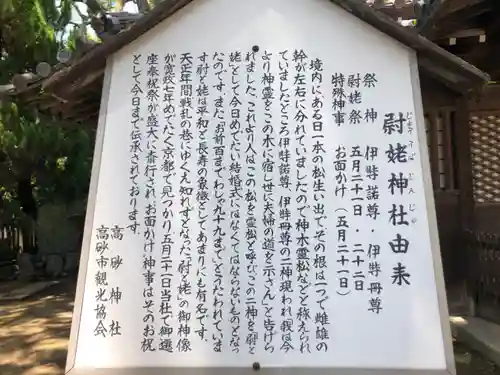 尉姥神社由来
じょうとんばじんじゃ
祭神　伊弉諾尊・伊弉冊尊
尉姥祭　五月二十一日・二十二日
特殊神事　お面かけ（五月二十一日）
境内にある日一本の松生い出てその根は一つで雌雄の
幹が左右に分れていましたので神木霊松などと称えられ
ていましたところ伊弉諾尊、伊弉冊尊の二神現われ「我は今
より神霊をこの木に宿し世に夫婦の道を示さん」と告げら
れました。これより人はこの松を霊松と呼びこの二神を「尉と
姥」として今日めでたい結婚式にはなくてはならないものとなっ
たのです。また「お前百までわしゃ九十九まで」とうたわれていま
す尉と姥は平和と長寿の象徴としてあまりにも有名です。
天正年間戦乱の巷にゆくえ知れずとなった「尉と姥」の御神像
が寛政七年めでたく京都で見つかり五月二十一日当社で御遷
座奉祝祭が盛大に斎行され、お面かけ神事はそのお祝
として今日まで伝承されております。
高砂神社
高砂市観光協会